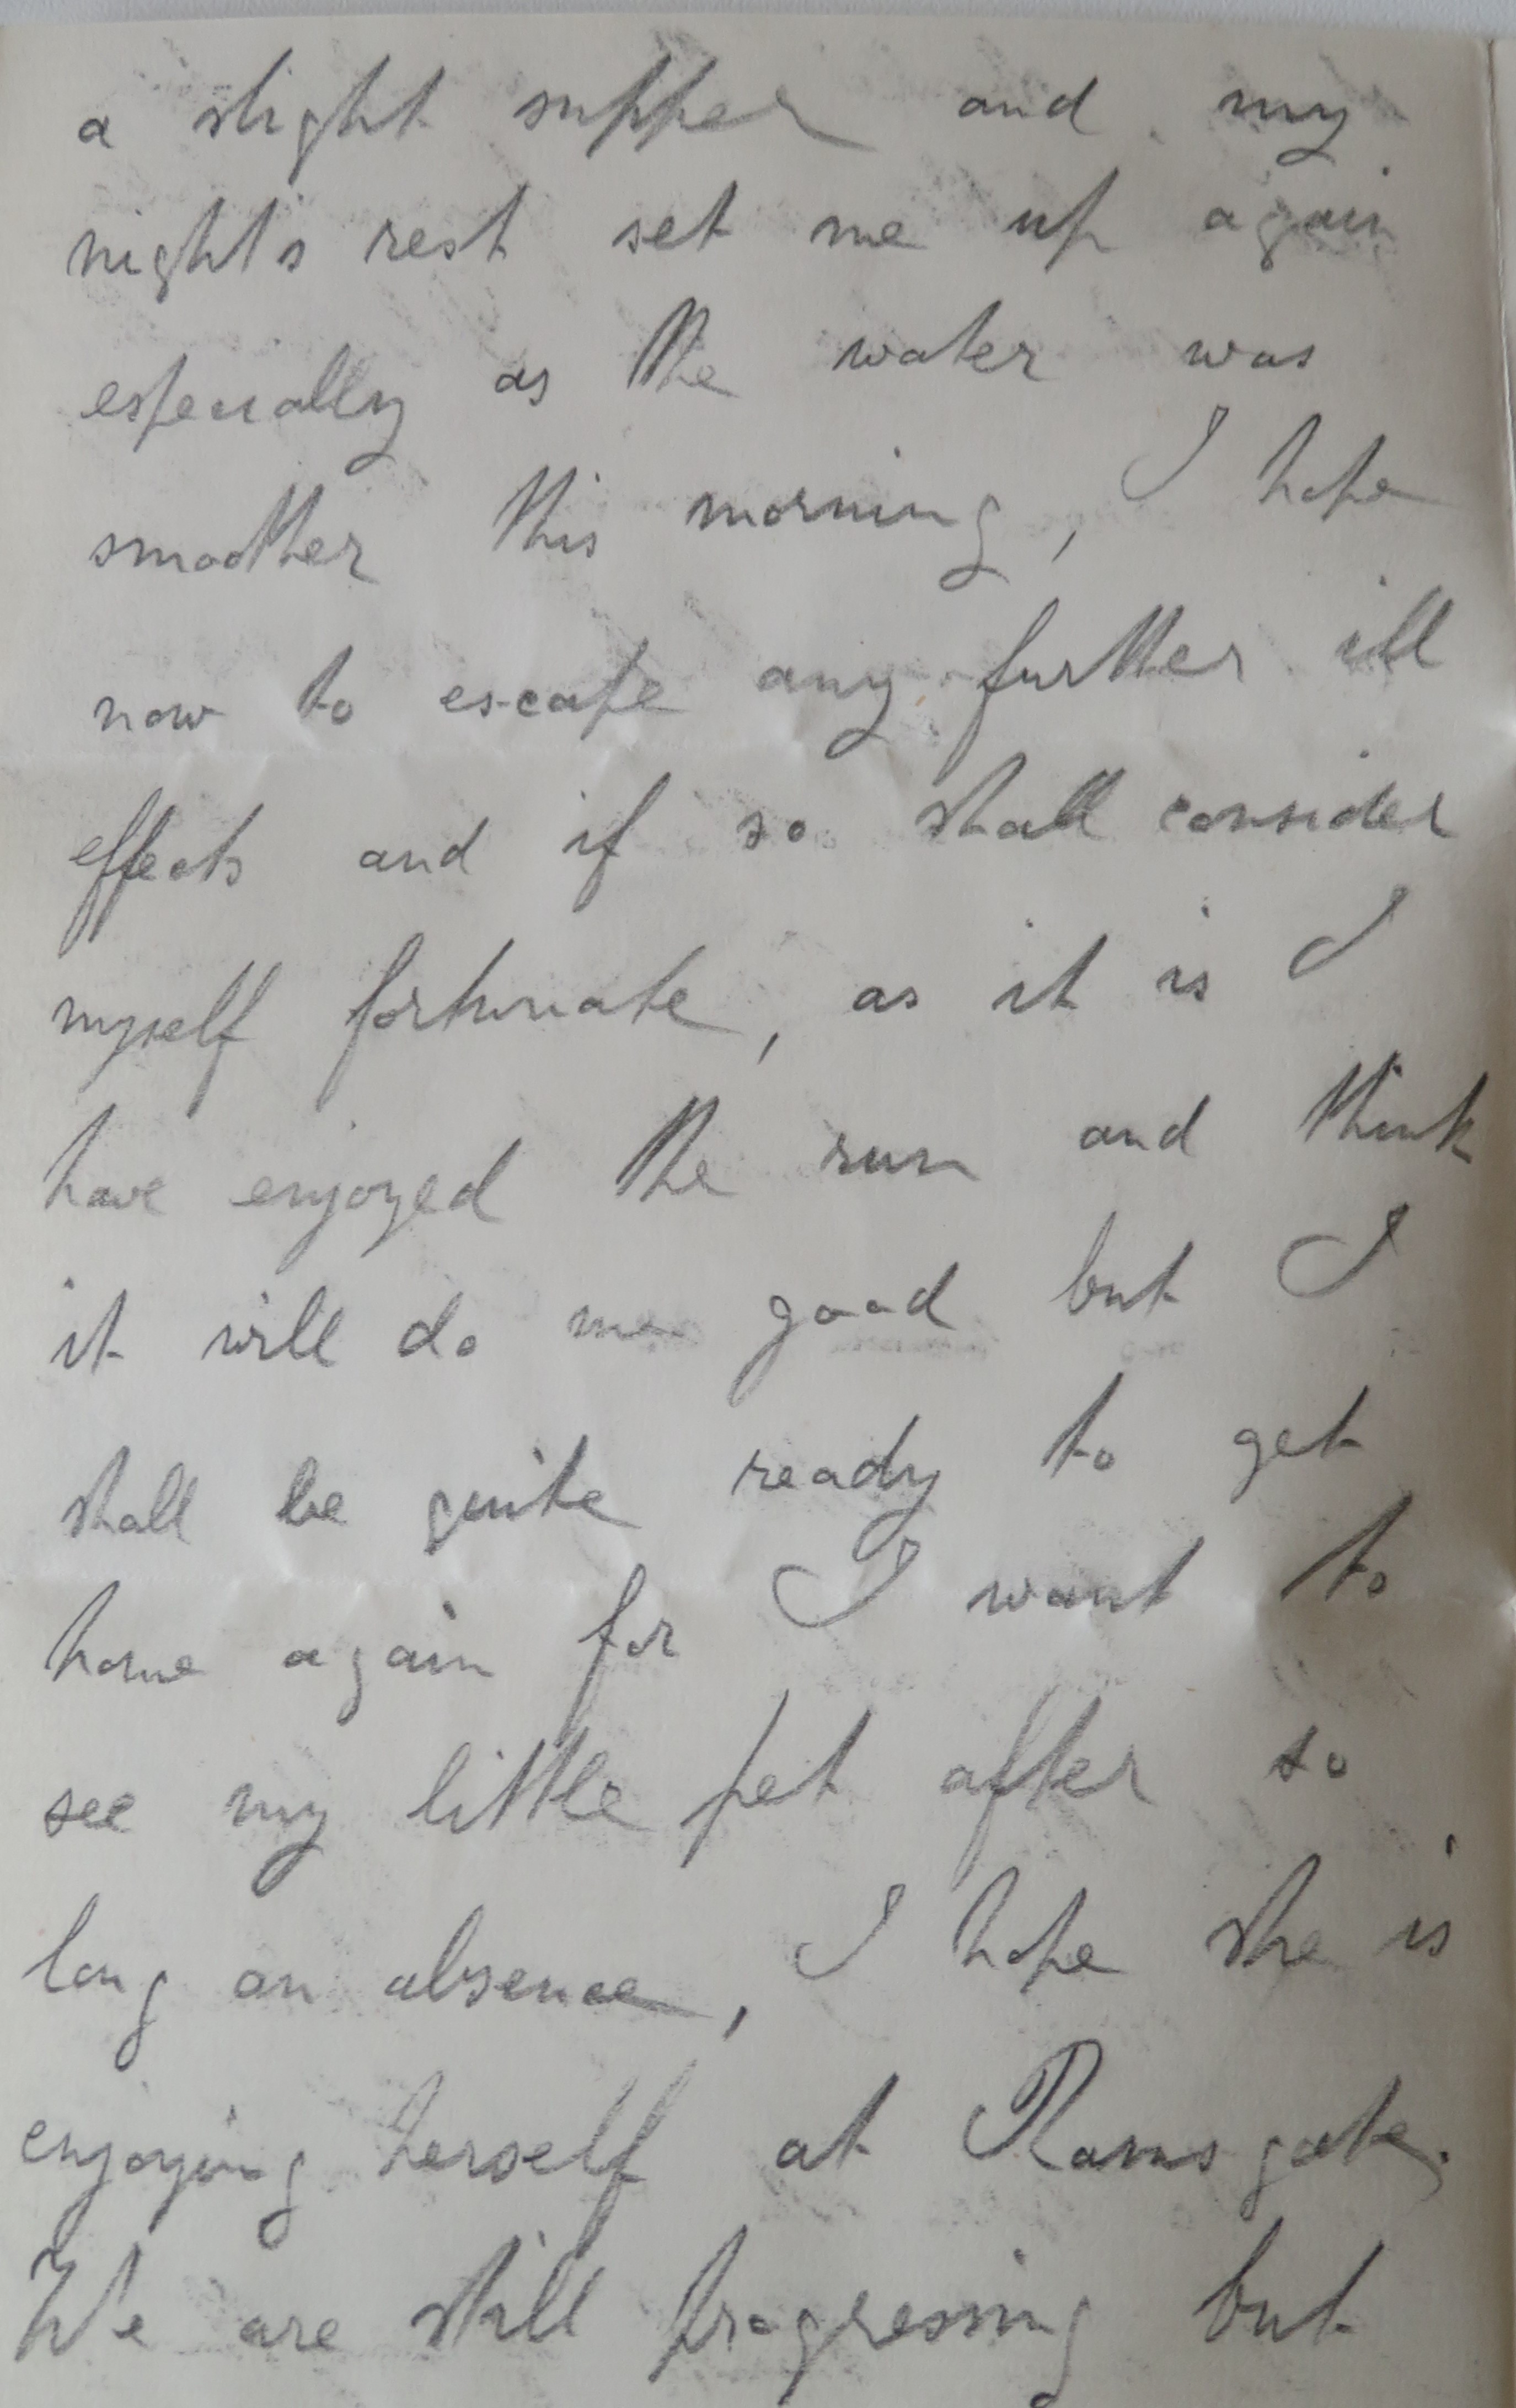 a slight supper and my
night's rest set me up again
especially as the water was
smoother this morning, I hope
now to escape any further ill
effects and if so shall consider
myself fortunate, as it is I
have enjoyed the run and think
it will do me good but I
shall be quite ready to get
home again for I want to
see my little pet after so
long an absence, I hope she is
enjoying herself at Ramsgate.
We are still progressing but